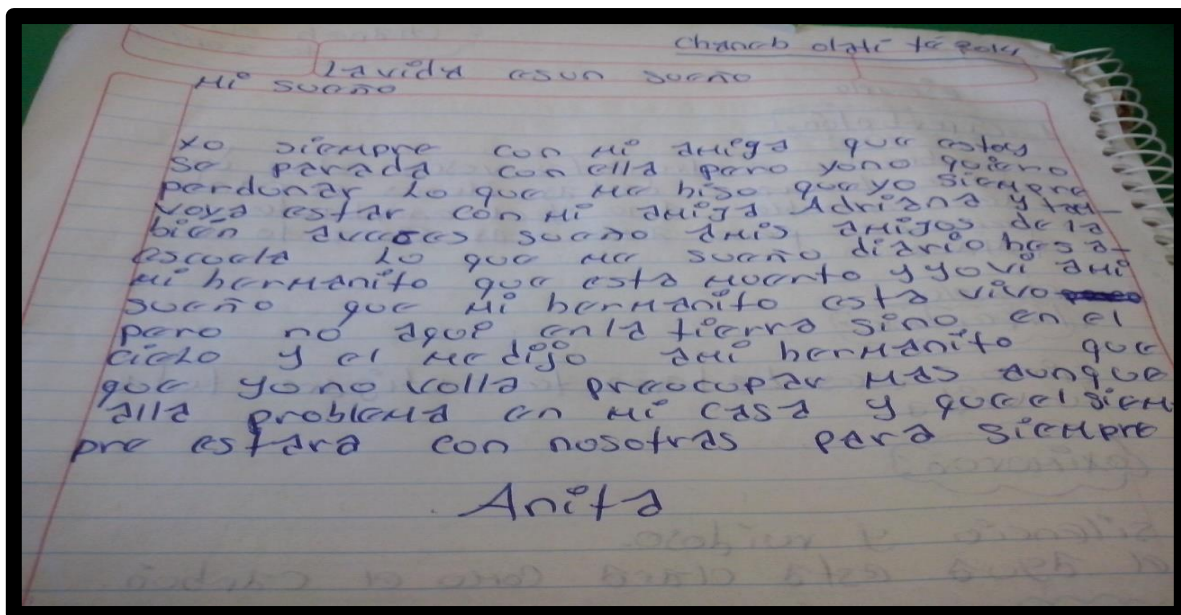 La vida es un sueño
Mi sueño
Yo siempre con mi amiga que estoy
se parada con ella pero yo no quiero
perdunar lo que me hiso que yo siempre
voy a estar con mi amiga Adriana y tam-
bien aveces sueño a mis amigos de la
escuela lo que me sueño diario hes a-
mi hermanito que esta muerto y yo vi a mi
sueño que mi hermanito esta vivo
pero no aqui en la tierra sino en el
cielo y el me dijo a mi hermanito que
que yo no volla preocupar mas aunque
alla problema en mi casa y que el siem
pre estara con nosotras para siempre
Anita
silencio y
el agua esta clara como el